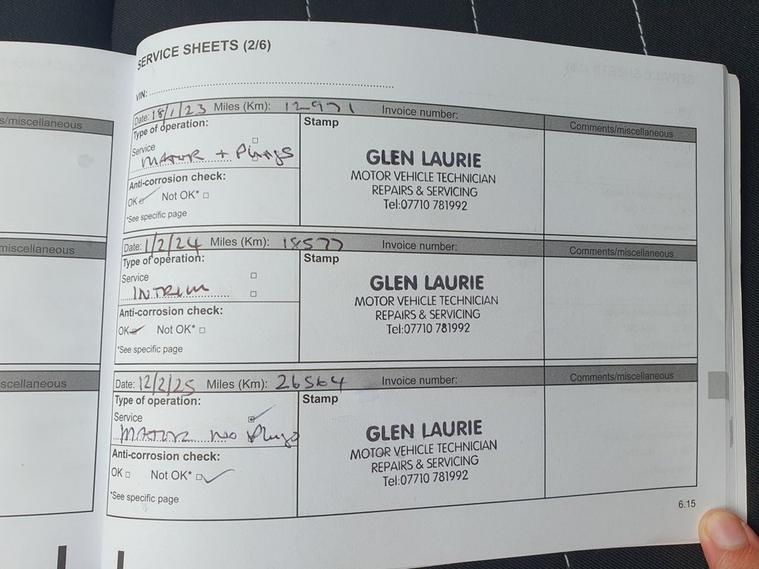 SERVICE SHEETS (2/6)
VIN:
s/miscellaneous
Date: 18/1/23 Miles (Km): 12971 Invoice number: Comments/miscellaneous
Type of operation:
Stamp
Service
MATOR + Plugs
Anti-corrosion check:
OK Not OK*
*See specific page
GLEN LAURIE
MOTOR VEHICLE TECHNICIAN
REPAIRS & SERVICING
Tel:07710 781992
miscellaneous
Date: 1/2/24 Miles (Km): 18577 Invoice number: Comments/miscellaneous
Type of operation:
Stamp
Service
INTRIM
Anti-corrosion check:
OK Not OK*
*See specific page
GLEN LAURIE
MOTOR VEHICLE TECHNICIAN
REPAIRS & SERVICING
Tel:07710 781992
scellaneous
Date: 12/2/25 Miles (Km): 26564 Invoice number: Comments/miscellaneous
Type of operation:
Stamp
Service
MATOR no Plugs
Anti-corrosion check:
OK Not OK*
*See specific page
GLEN LAURIE
MOTOR VEHICLE TECHNICIAN
REPAIRS & SERVICING
Tel:07710 781992
6.15